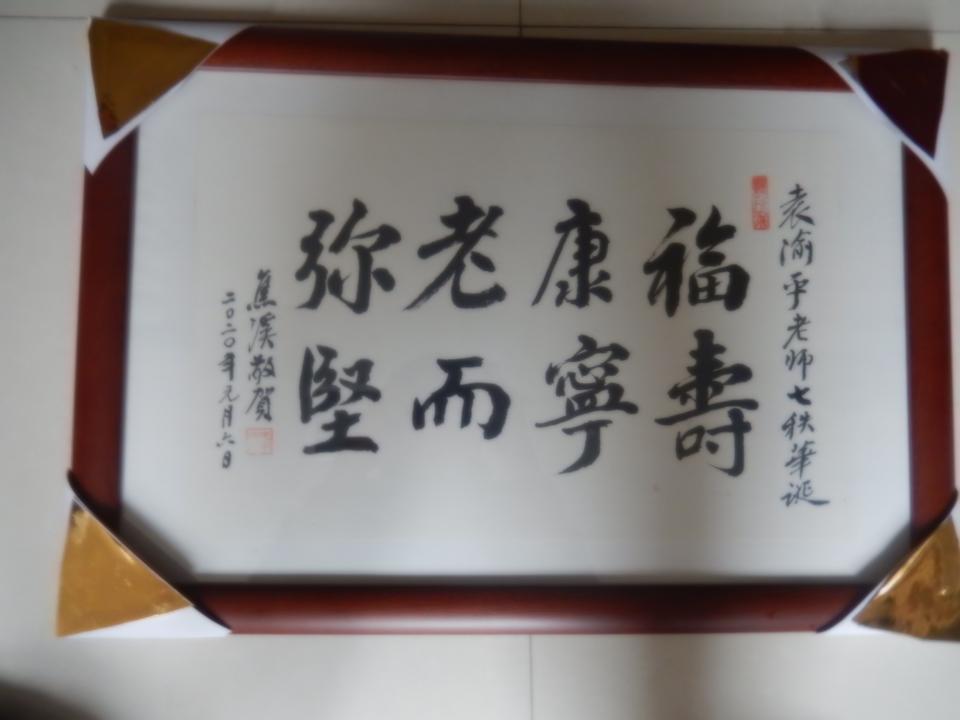 袁渝平老师七秩華誕
福壽
康寧
老而
弥堅
焦溪敬贺
二〇二〇年元月六日